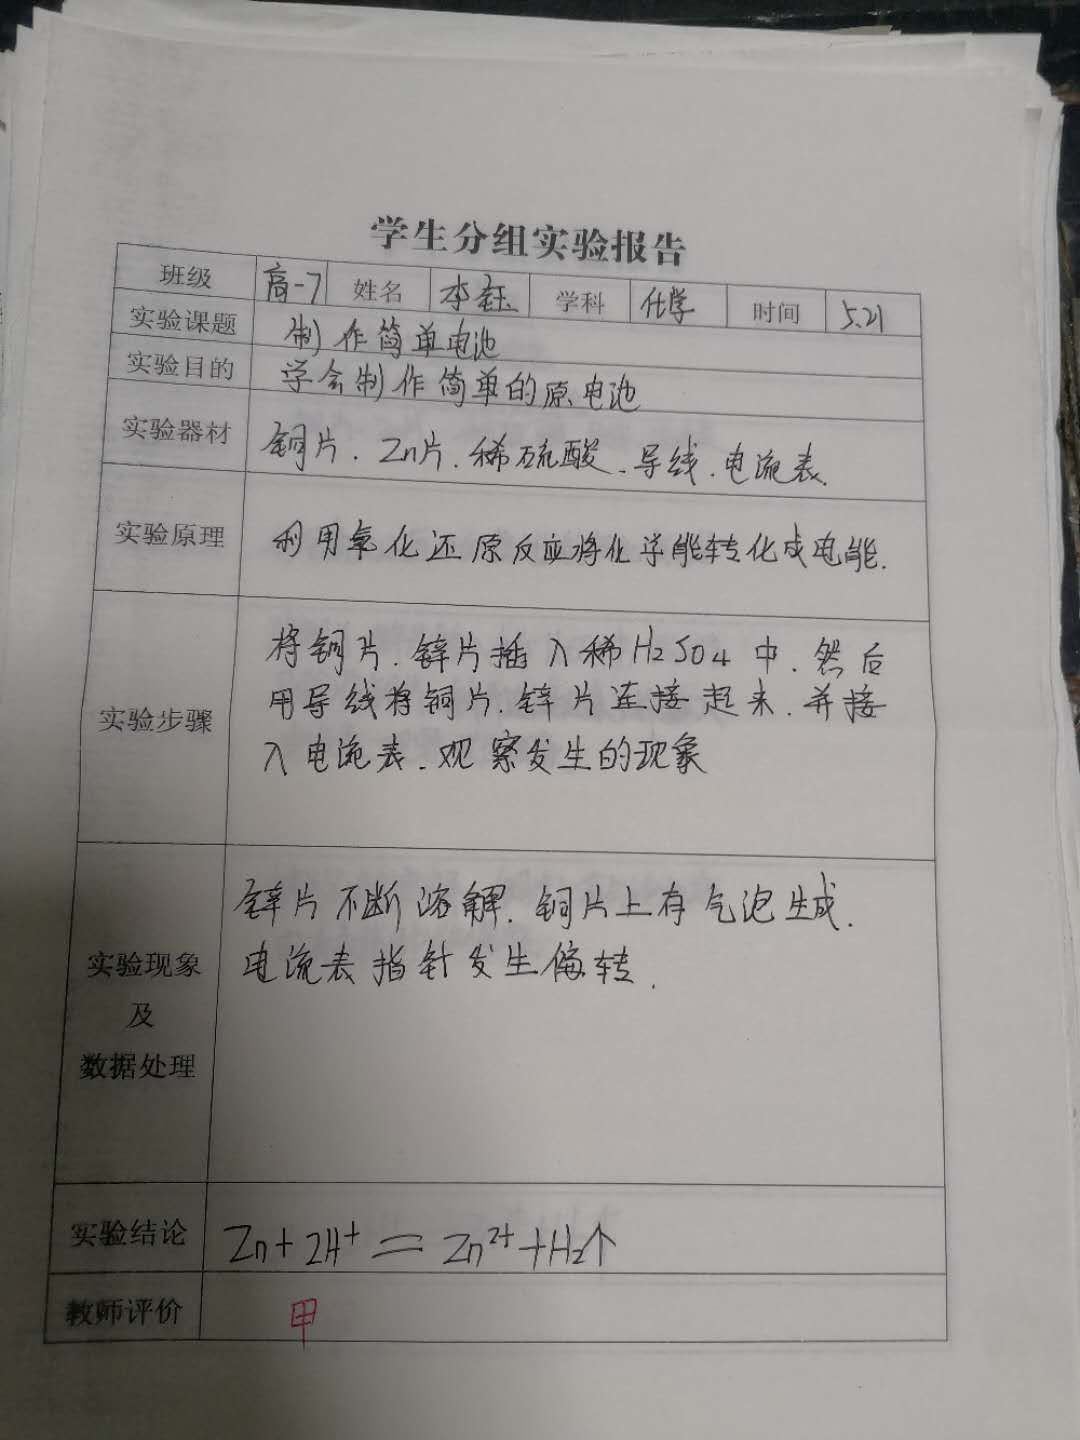 学生分组实验报告
班级 高一7 姓名 李钰 学科 化学 时间 5.21
实验课题 制作简单电池
实验目的 学会制作简单的原电池
实验器材 铜片、Zn片、稀硫酸、导线、电流表.
实验原理 利用氧化还原反应将化学能转化成电能.
将铜片、锌片插入稀H₂SO₄中、然后
实验步骤 用导线将铜片、锌片连接起来、并接
入电流表、观察发生的现象
锌片不断溶解、铜片上有气泡生成.
实验现象 电流表指针发生偏转.
及
数据处理
实验结论 Zn+2H⁺=Zn²⁺+H₂↑
教师评价 甲